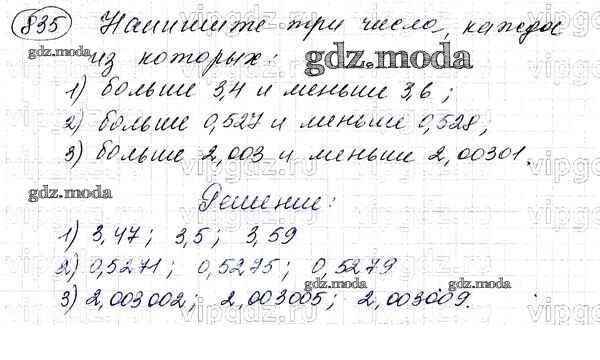 835 Напишите три числа, каждое
из которых: gdz.moda
1) больше 3,4 и меньше 3,6;
2) больше 0,527 и меньше 0,528;
3) больше 2,003 и меньше 2,00301.
gdz.moda
Решение:
1) 3,47; 3,5; 3,59
2) 0,5271; 0,5275; 0,5279
gdz.moda gdz.moda
3) 2,003002; 2,003005; 2,003009.
gdz.moda